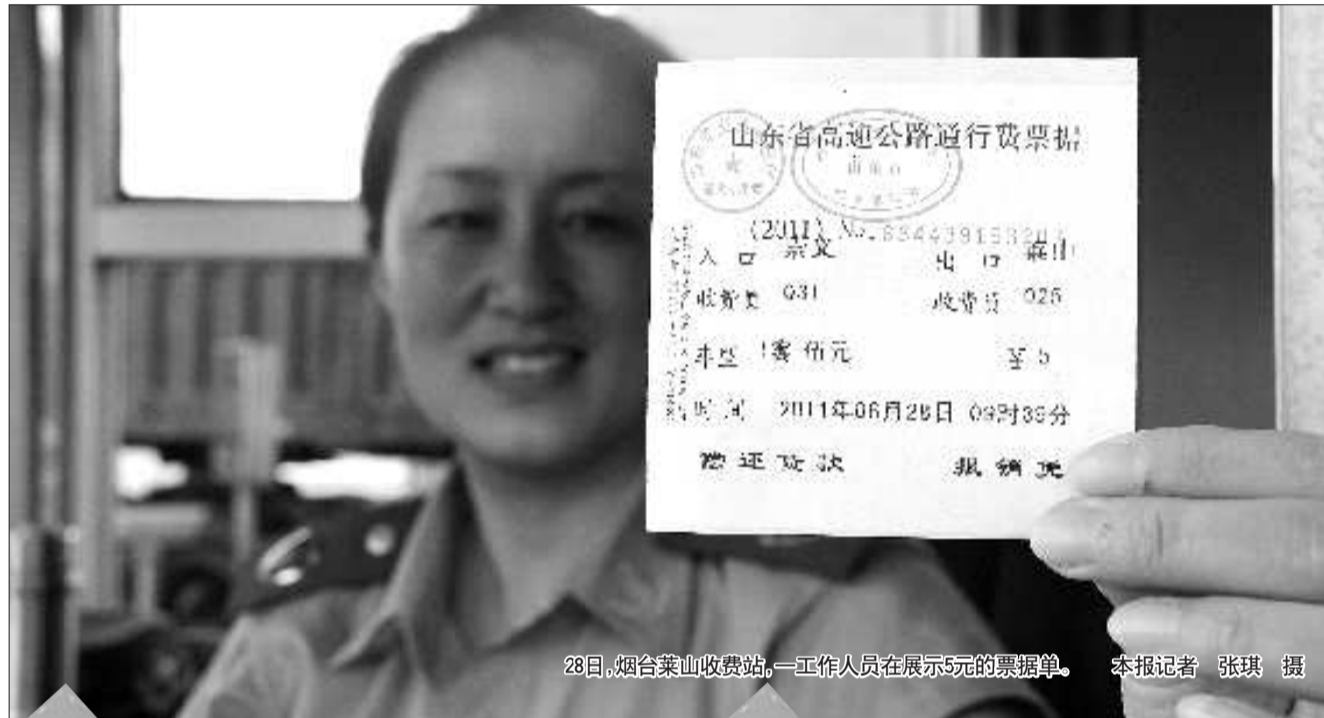 山东省高速公路通行费票据
(2011) No.
入口 出口 莱山
收费员 031 收费员 025
车型 1客 伍元 ￥5
时间 2011年06月28日 09时39分
偿还贷款 报销凭
28日,烟台莱山收费站,一工作人员在展示5元的票据单。 本报记者 张琪 摄